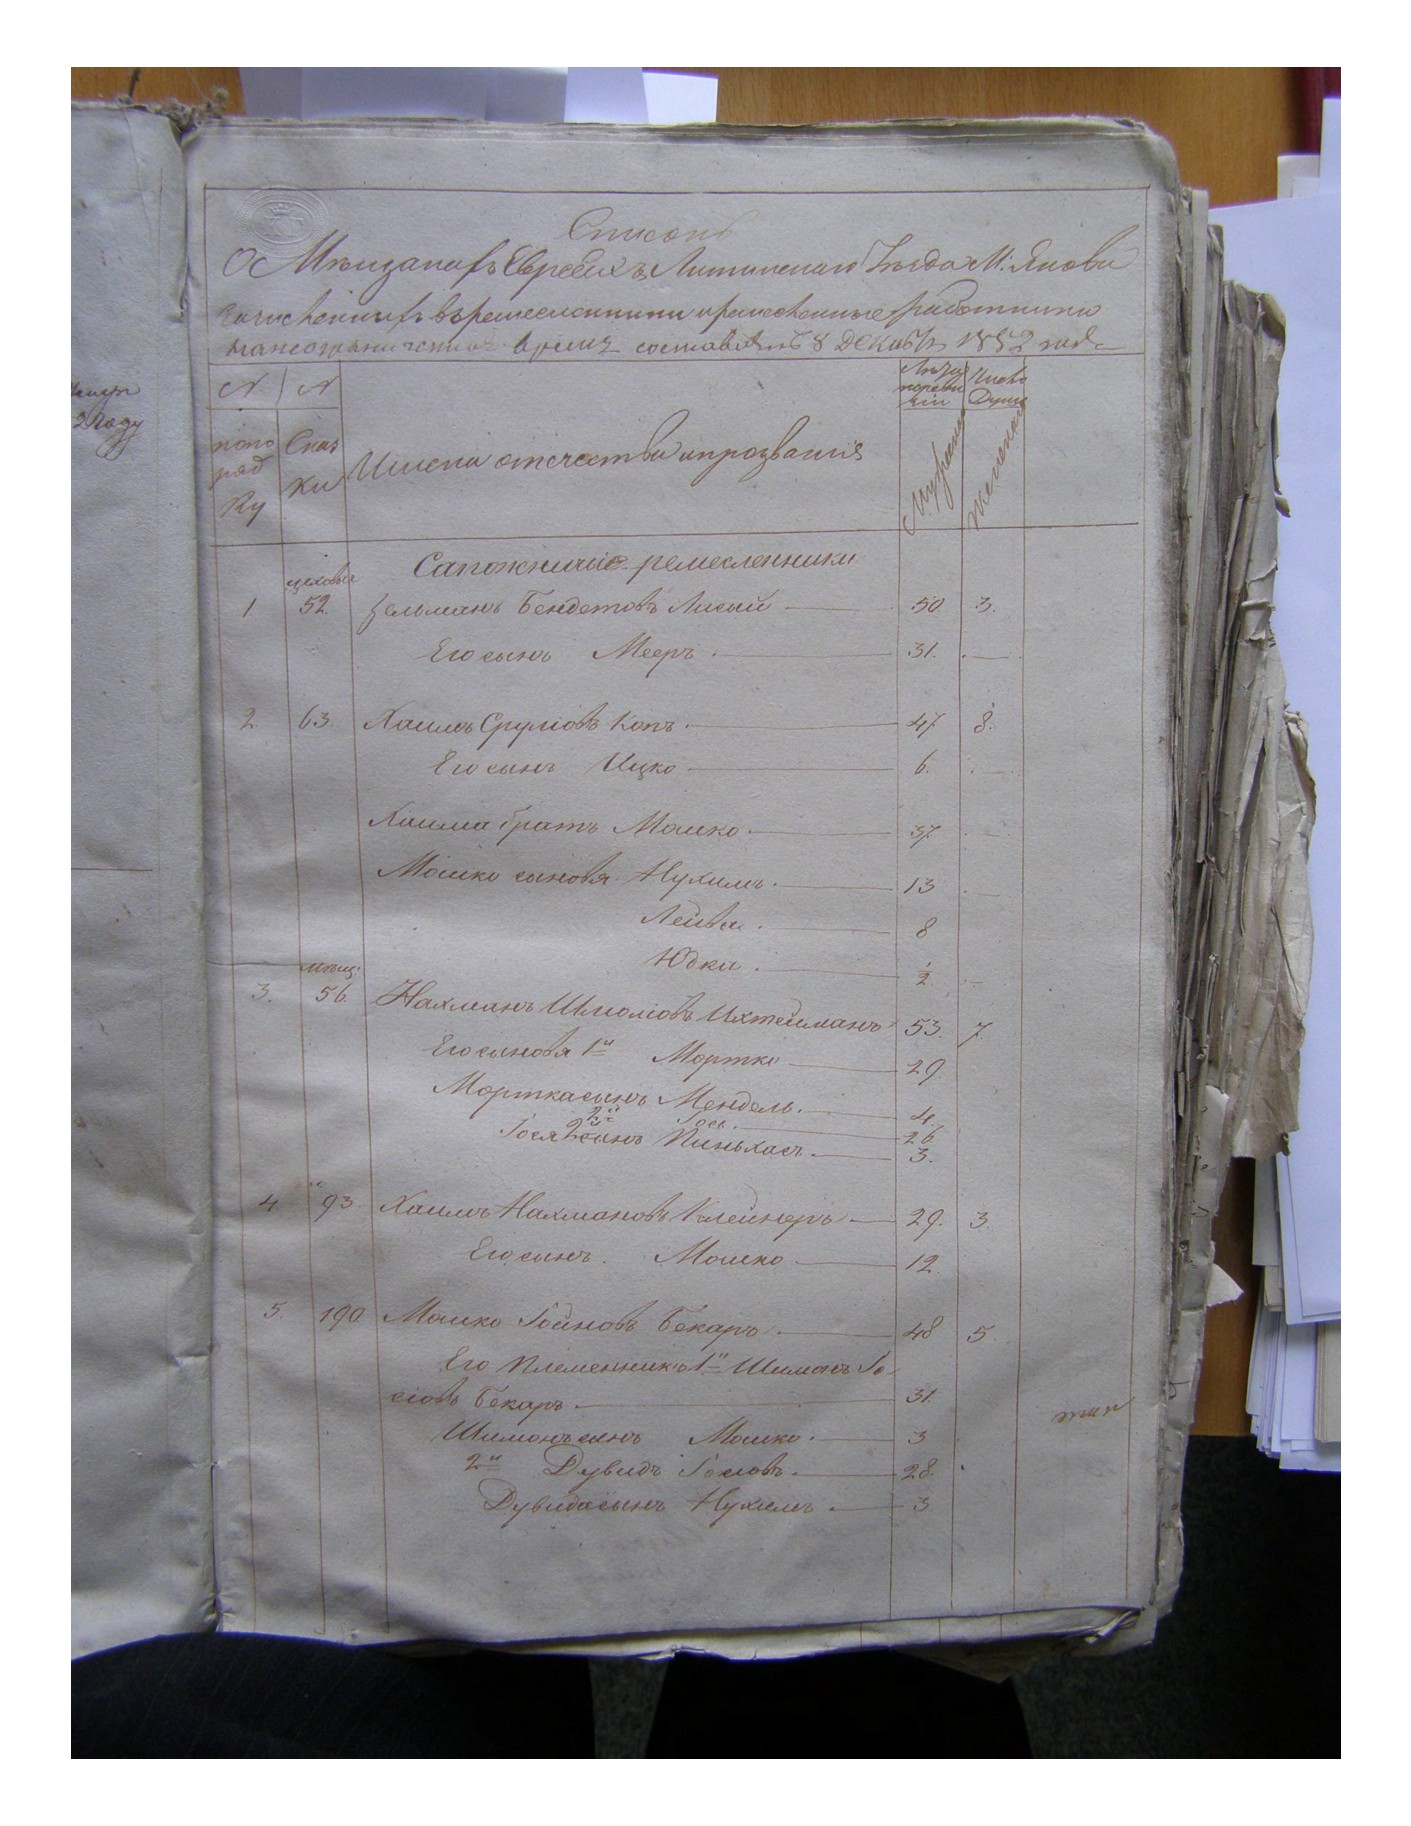 Списокъ
О Мѣщанахъ Евреяхъ Литинскаго Уѣзда М: Янова
зачисленныхъ въ ремесленники ремесленные работники
составленъ 8 Декабря 1852 года
№ № Число
по по ряд ку Сказ ки Имена отечества и прозвания Душъ
Мужеска Женска
2 году
Сапожничьіе ремесленники
цеховые
1 52 Зельманъ Бендетовъ Лисый 50 3.
Его сынъ Мееръ 31.
2 63. Хаимъ Сруліовъ Копъ 47 8.
Его сынъ Ицко 6.
Хаима братъ Мошко 37
Мошко сыновя Нухимъ 13
Лейба 8
Юдка 2
мѣщ:
3. 56. Нахманъ Шмоліовъ Ихтейманъ 53. 7.
Его сыновя 1й Мортко 29
Мортка сынъ Мендель 4.
2й Іось 26
Іося сынъ Пинькасъ 3.
4 " 93 Хаимъ Нахмановъ Клейнеръ 29. 3.
Его сынъ Мошко 12
5. 190 Мошко Гойновъ Бекаръ 48 5.
Его племенники 1й Шимонъ Іо-
сіовъ Бекаръ 31.
Шимонъ сынъ Мошко 3
2й Дувидъ Іосіовъ 28.
Дувида сынъ Нухимъ 3